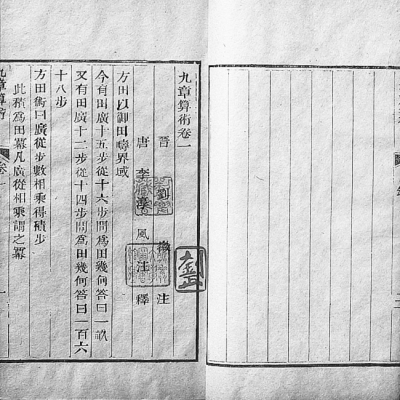 九章算術卷一
晉 劉徽 注
唐 李淳風 注釋
方田以御田疇界域
今有田廣十五步從十六步問為田幾何答曰一畝
又有田廣十二步從十四步問為田幾何答曰一百六
十八步
方田術曰廣從步數相乘得積步
此積為田冪凡廣從相乘謂之冪
九章算術
卷一